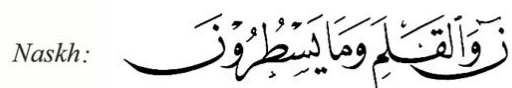 Naskh: نٓ وَٱلْقَلَمِ وَمَا يَسْطُرُوْنَ